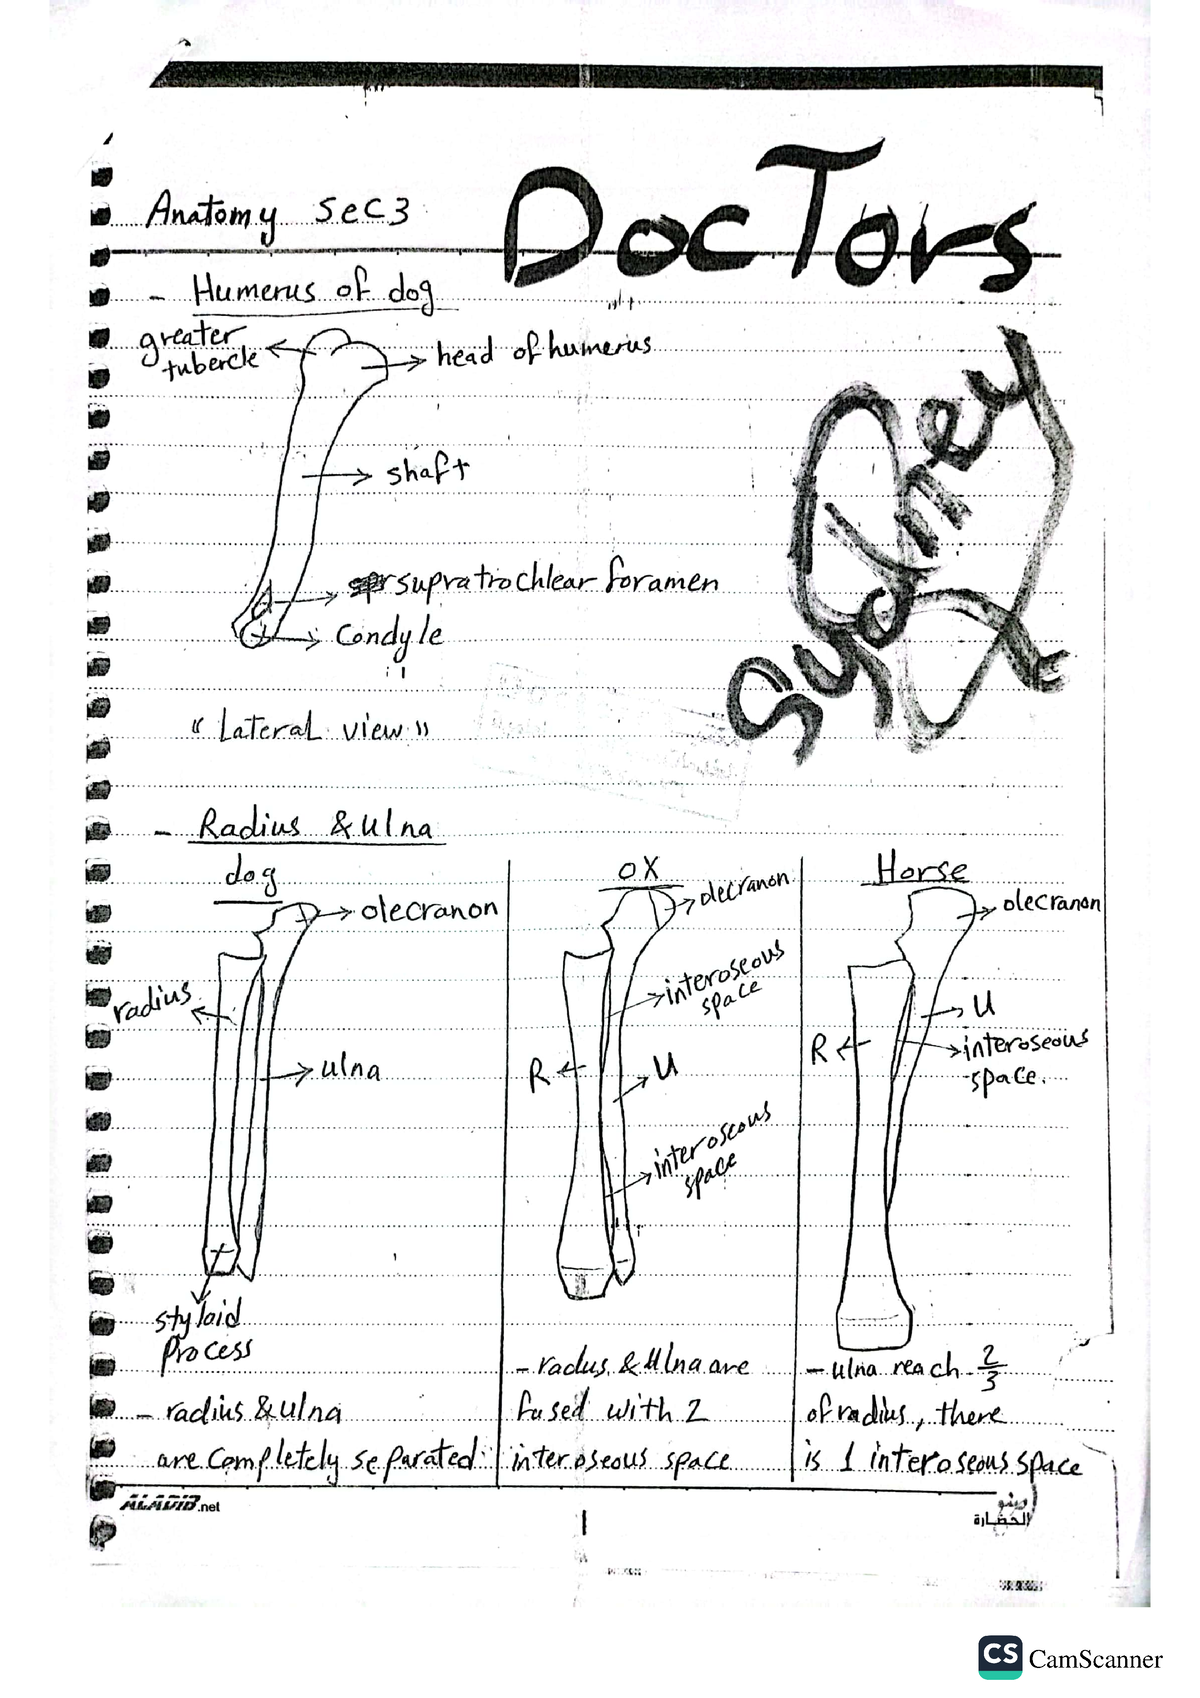 Anatomy sec3
DocTors
- Humerus of dog
greater
tubercle
head of humerus
shaft
supratrochlear foramen
Condyle
"Lateral view"
Sydney
- Radius & ulna
dog
olecranon
radius
ulna
styloid
Process
- radius & ulna
are completely separated
OX
olecranon
interoseous
space
R
U
interoseous
space
- radus & ulna are
fused with 2
interoseous space
Horse
olecranon
U
R
interoseous
space.
- ulna reach 2/3
of radius, there
is 1 interoseous space
ALADIB.net
1
الحضارة
CS CamScanner